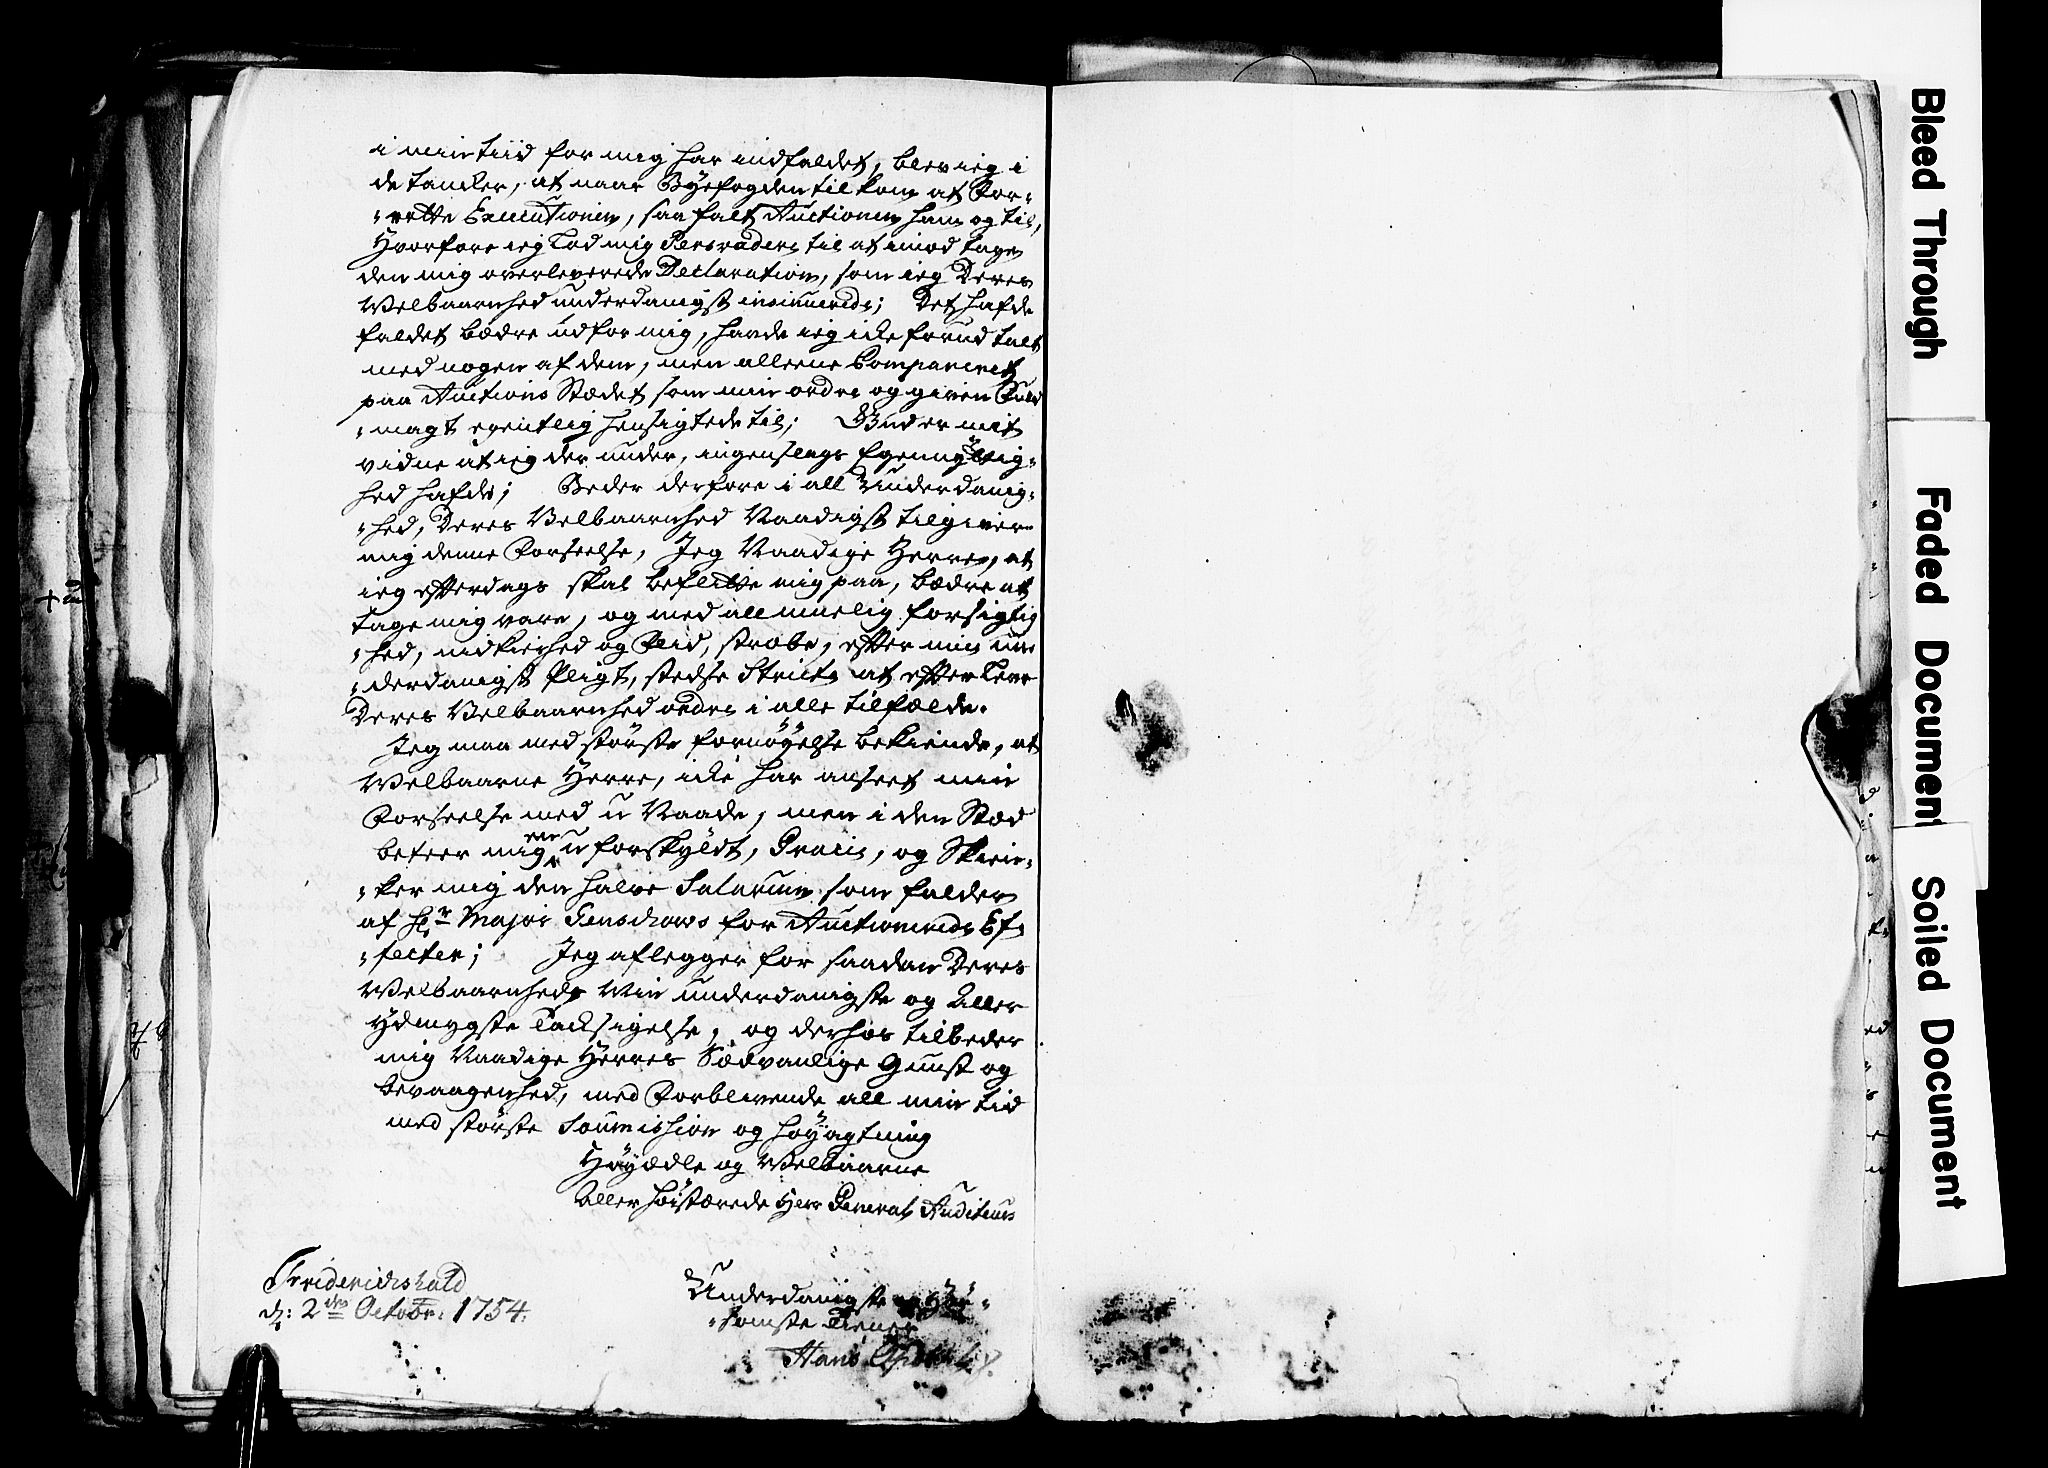 i min tiid for mig har indfaldet, blev ieg i
de tancker, at naar Byefogden til kom at For-
-rette Executionen, saa falt Auctionen ham og til,
Hvorfore ieg Lod mig Persvadere til at imod tage
den mig overleverede Declaration, som ieg Deres
Velbaarnhed underdanigst insinuerede; Det hafde
faldet bædre ud for mig, havde ieg icke forud talt
med nogen af dem, men alleene Compareret
paa Auctions Stædet som min ordre og given Fuld
-magt egentlig hensigtede til; Gud er mit
vidne at ieg der under, ingenslags Egennÿttig-
hed hafde; Beder derfore i all Underdanig-
-hed, Deres Velbaarnhed Naadigst tilgiver
mig denne Forseelse, Jeg Naadige Herre, at
ieg efterdags skal beflitte mig paa, bædre at
tage mig vare, og med all muelig forsigtig
-hed, nidkierhed og Flid, stræbe, efter min un
-derdanigst Pligt, stedse Stricte at efter Leve
Deres Velbaarnhed ordre i alle tilfælde.
Jeg maa med største fornøÿelse bekiende, at
Velbaarne Herre, icke har anseet min
Forseelse med u Naade, men i den Stæd
beteer mig een u forskÿldt, Gracie, og Skien-
-ker mig den halve Salarium som falder
af Hr Major Genschows for Auctionerede Ef-
-fecter; Jeg aflegger for saadan Deres
Velbaarnheds Min underdanigste og Aller
ydmygste Tacksigelse, og derhos tilbeder
mig Naadige Herres Sædvanlige Gunst og
bevaagenhed, med Forblivende all min tid
med største Soumission og høÿagtning
Høÿædle og Velbaarne
Aller høistærede Herr General Auditeur
Friderichshald
d: 2den Octobr: 1754.
Underdanigste og Hør-
-somste Tiener
Hans
+
Bleed Through
Faded Document
Soiled Document